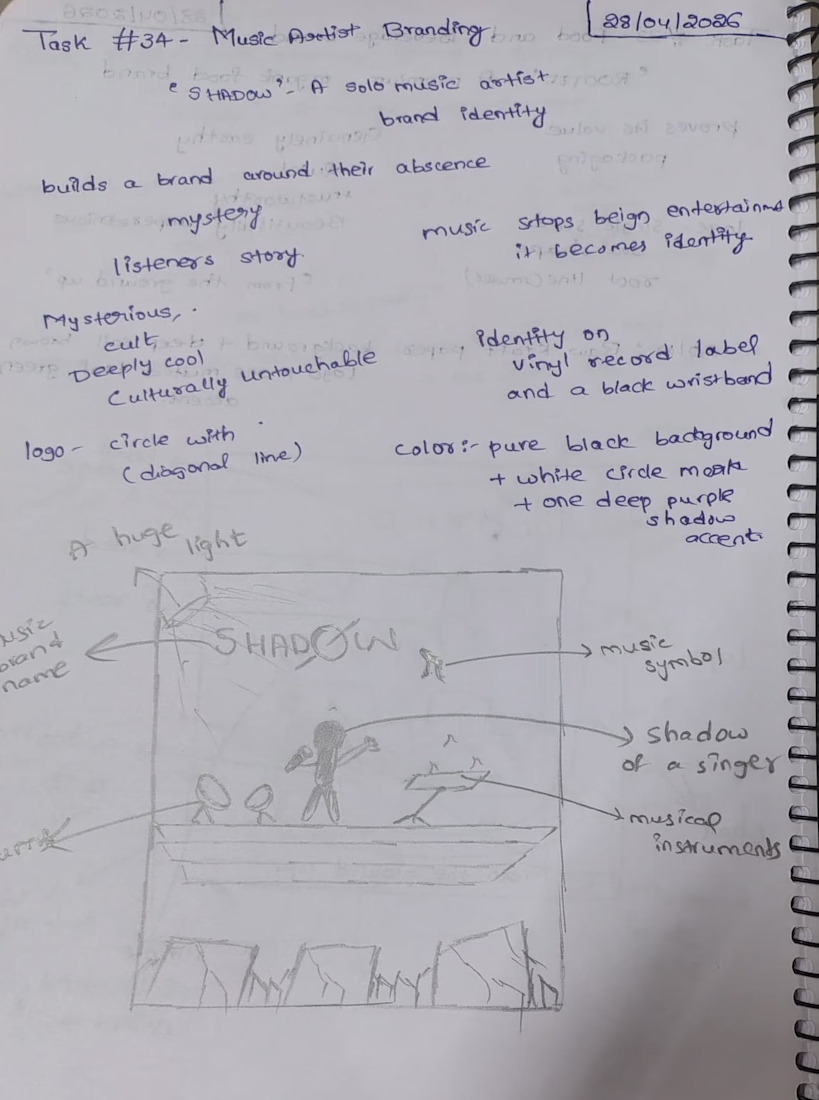 28/04/2026
Task #34 - Music Artist Branding
"SHADOW" - A solo music artist
brand identity
builds a brand around their abscence
mystery
listeners story
music stops beign entertainme
it becomes identity
Mysterious,
cult
Deeply cool
Culturally untouchable
identity on
vinyl record label
and a black wristband
logo - circle with
(diagonal line)
color:- pure black background
+ white circle mark
+ one deep purple
shadow
accent
A huge light
SHADOW
usic
brand
name
music
symbol
shadow
of a singer
musical
instruments